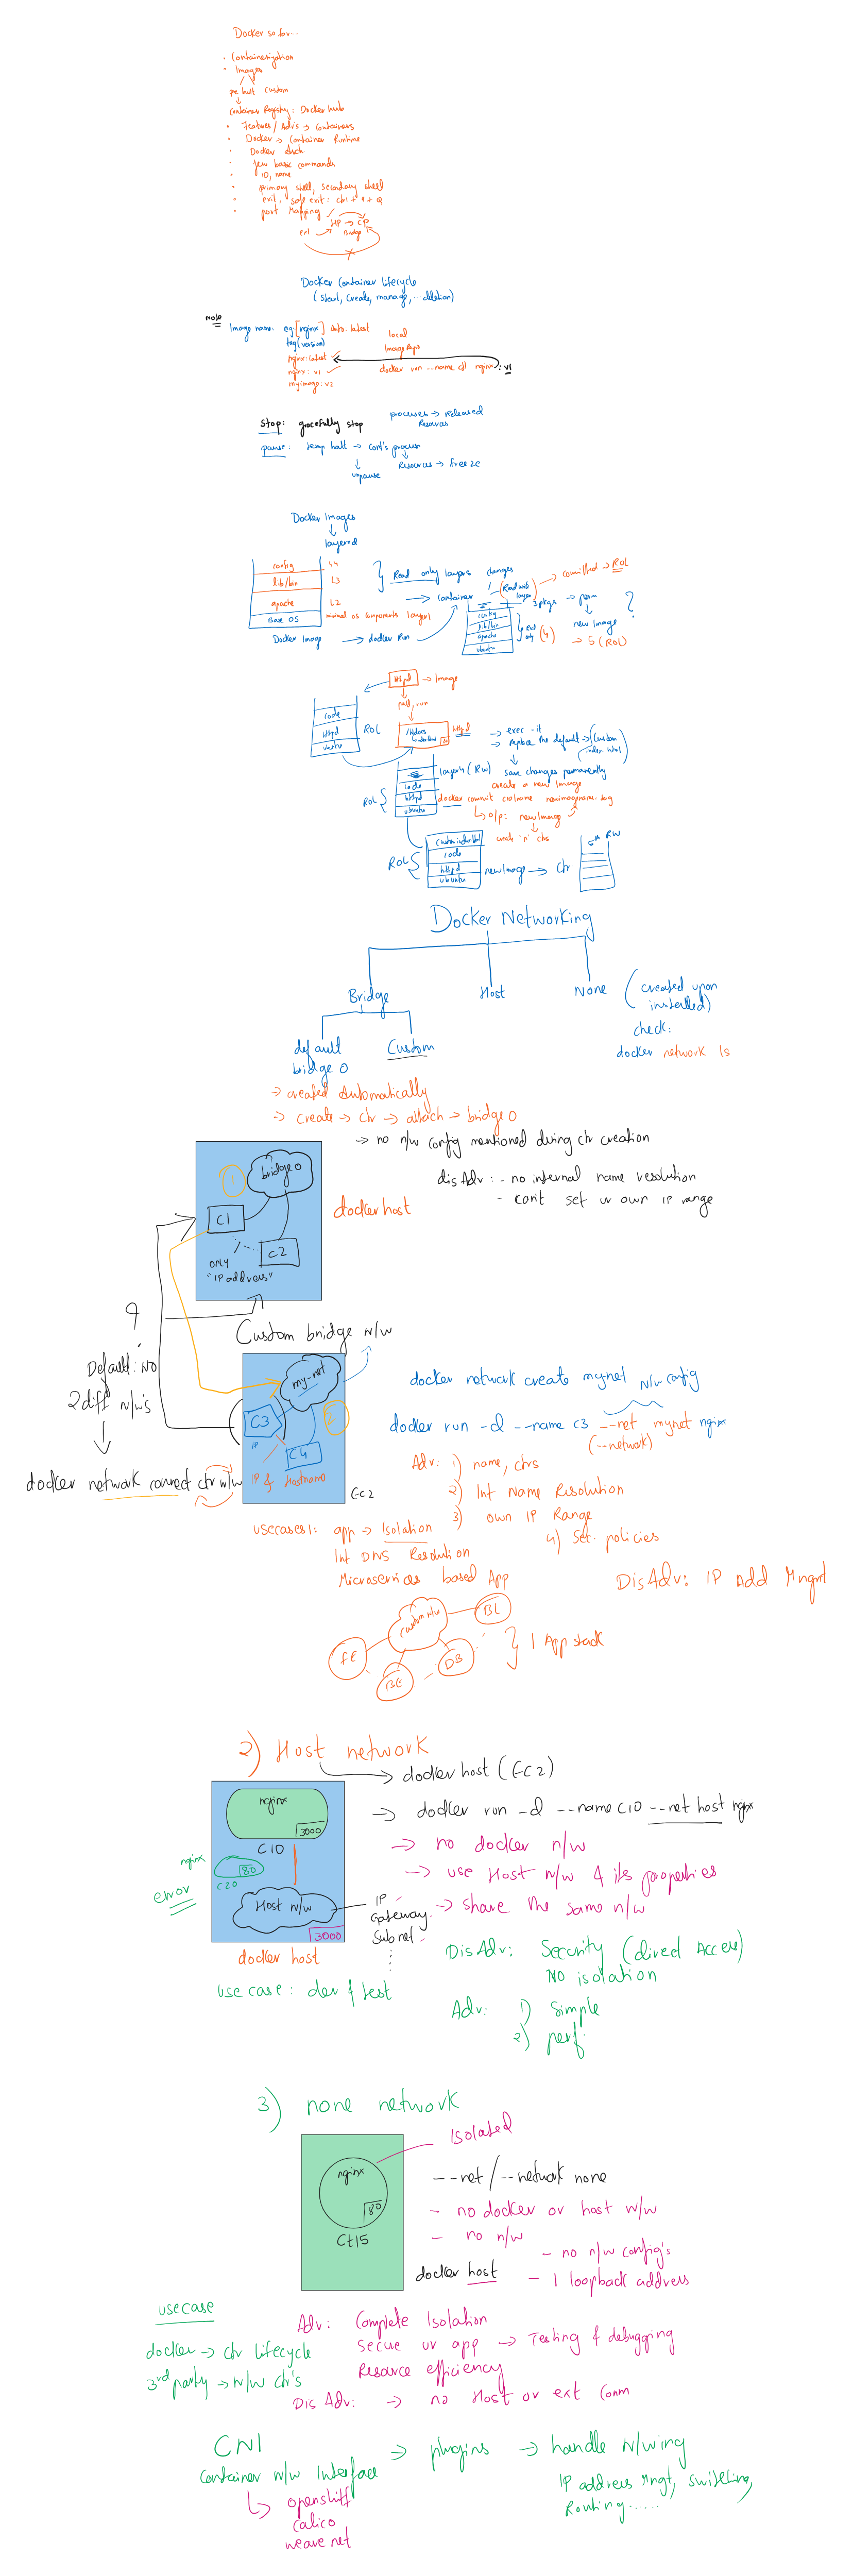 Docker so far...
• Containerization
• Images
pre built custom
Container Registry: Docker hub
• Features / Adv's → Containers
• Docker → Container Runtime
• Docker Arch
• few basic commands
• ID, name
• primary shell, secondary shell
• exit, safe exit: ctrl + P + Q
• port Mapping
HP → CP
Bridge
Docker Container lifecycle
(start, create, manage, ... deletion)
note
Image name: eg [nginx] Auto: latest
tag (version)
local
Image Repo
nginx: latest
nginx: v1
docker run --name c1 nginx : v1
myimage: v2
processes → released
Resources
Stop: gracefully stop
pause: temp halt → cont's process
Resources → freeze
unpause
Docker Images
layered
config L4
lib/bin L3
apache L2
Base OS minimal os components layer 1
Read only layers
changes
(Read write layer)
committed → ROL
→ container
3 pkgs → perm
new Image
→ 5 (ROL)
?
config
lib/bin
apache
ubuntu
(4)
Docker Image → docker Run
httpd → Image
pull, run
code
httpd
ubuntu
ROL
/htdocs
index.html
httpd
→ exec -it
→ replace the default → (custom index.html)
layer 4 (RW) save changes permanently
create a new Image
code
httpd
ubuntu
ROL
docker commit ctrname newimagename:tag
↳ o/p: new Image
create 'n' ctrs
custom index.html
code
httpd
ubuntu
ROL
new Image → Ctr
5th RW
Docker Networking
Bridge Host None
(created upon installed)
check:
docker network ls
default
bridge 0
Custom
→ created Automatically
→ create → ctr → attach → bridge 0
→ no n/w config mentioned during ctr creation
disAdv: - no internal name resolution
- can't set ur own IP range
bridge 0
1
C1
C2
only
"IP address"
docker host
?
Default: NO
2 diff N/w's
docker network connect ctr n/w
Custom bridge n/w
my-net
C3
IP
C4
IP & Hostname
EC2
docker network create mynet N/w config
docker run -d --name c3 --net mynet nginx
(--network)
Adv: 1) name, ctrs
2) Int Name Resolution
3) own IP Range
4) Sec. policies
usecases 1: app → Isolation
Int DNS Resolution
Microservices based App
DisAdv: IP Add Mngmt
custom n/w
BL
FE
BE
DB
1 App stack
2) Host network
docker host (EC2)
nginx
3000
C10
nginx
80
C20
error
Host N/w
3000
docker host
→ docker run -d --name C10 --net host nginx
→ no docker n/w
→ use Host n/w & its properties
→ share the same n/w
IP
Gateway
Subnet
DisAdv: Security (direct Access)
NO isolation
use case: dev & test
Adv: 1) simple
2) perf:
3) none network
Isolated
nginx
80
Ct15
docker host
--net/--network none
- no docker or host n/w
- no n/w
- no n/w config's
- 1 loopback address
usecase
docker → ctr lifecycle
3rd party → n/w ctr's
Adv: Complete Isolation
Secure ur app → Testing & debugging
Resource efficiency
Dis Adv: → no Host or ext Comm
CNI
Container n/w Interface
→ plugins → handle N/wing
IP address Mngt, switching,
Routing.....
openshift
calico
weave net